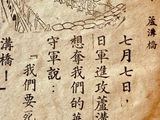 蘆溝橋
七月七日，
日軍進攻蘆溝
想奪我們的
守軍說：
「我們要死
溝橋！」